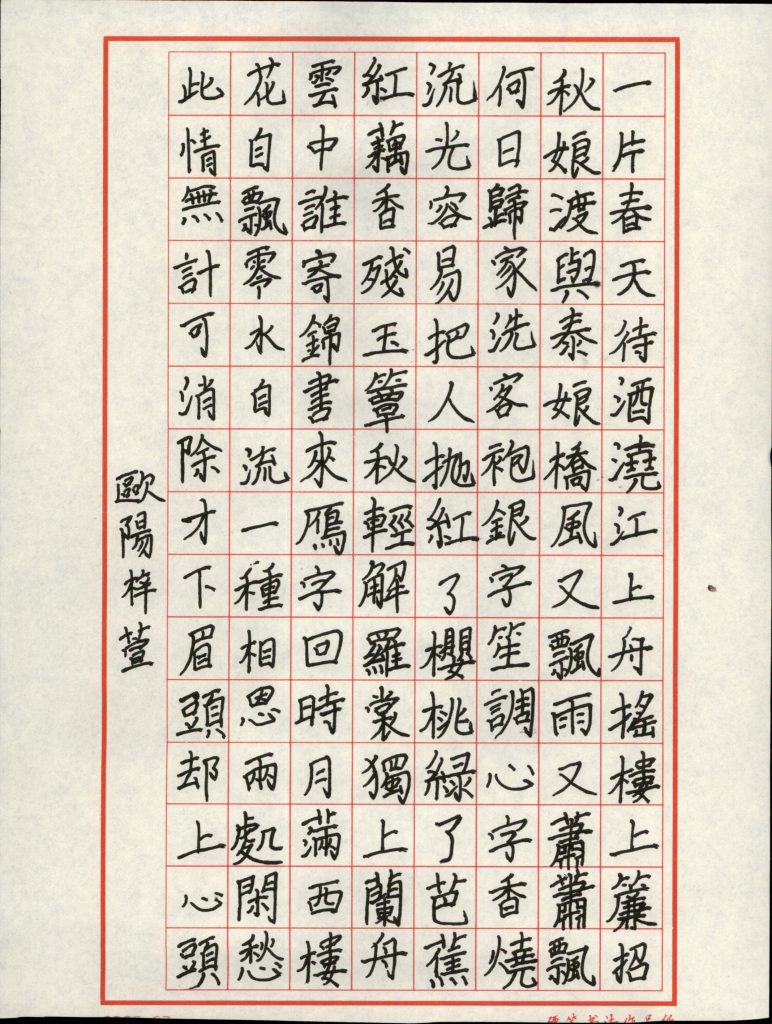 一片春天待酒澆江上舟搖樓上簾招
秋娘渡與泰娘橋風又飄雨又蕭蕭飄
何日歸家洗客袍銀字笙調心字香燒
流光容易把人拋紅了櫻桃綠了芭蕉
紅藕香殘玉簟秋輕解羅裳獨上蘭舟
雲中誰寄錦書來鴈字回時月滿西樓
花自飄零水自流一種相思兩處閑愁
此情無計可消除才下眉頭却上心頭
歐陽梓萱